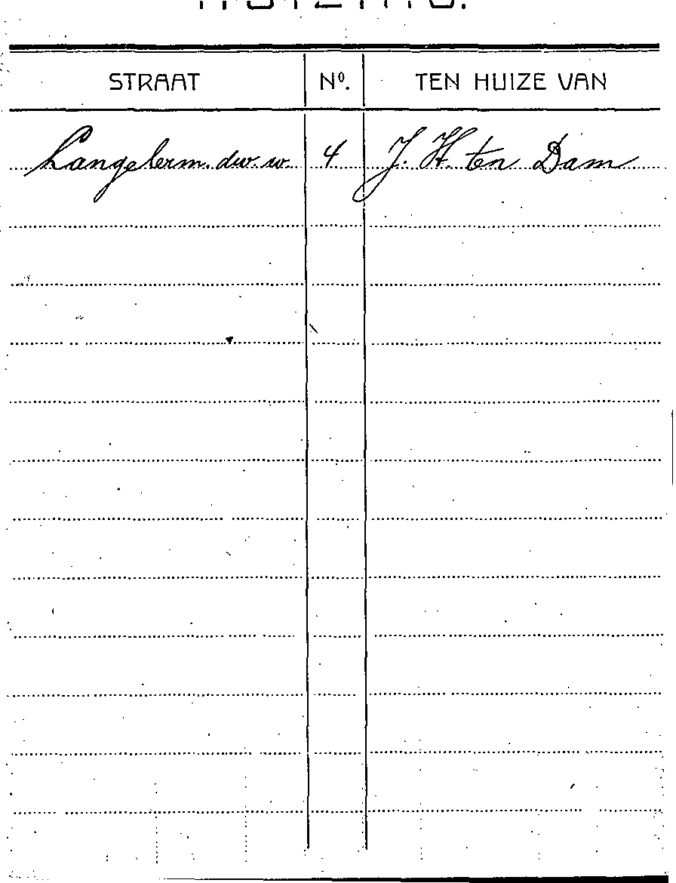 STRAAT Nº. TEN HUIZE VAN
Langelerm. dw. w. 4 J. H. ten Dam